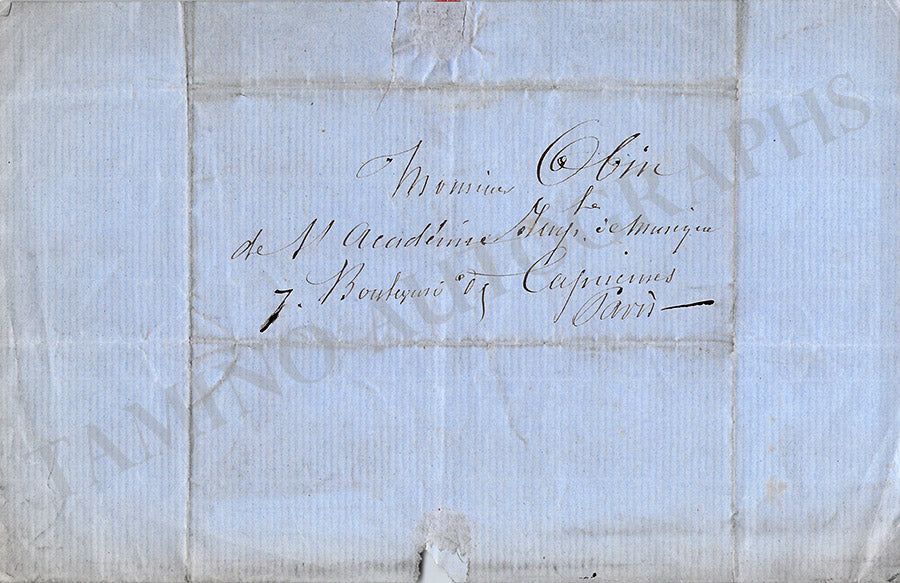 Monsieur Obin
de l'Académie Imp.le de Musique
7. Boulevard des Capucines
Paris
TAMINO AUTOGRAPHS